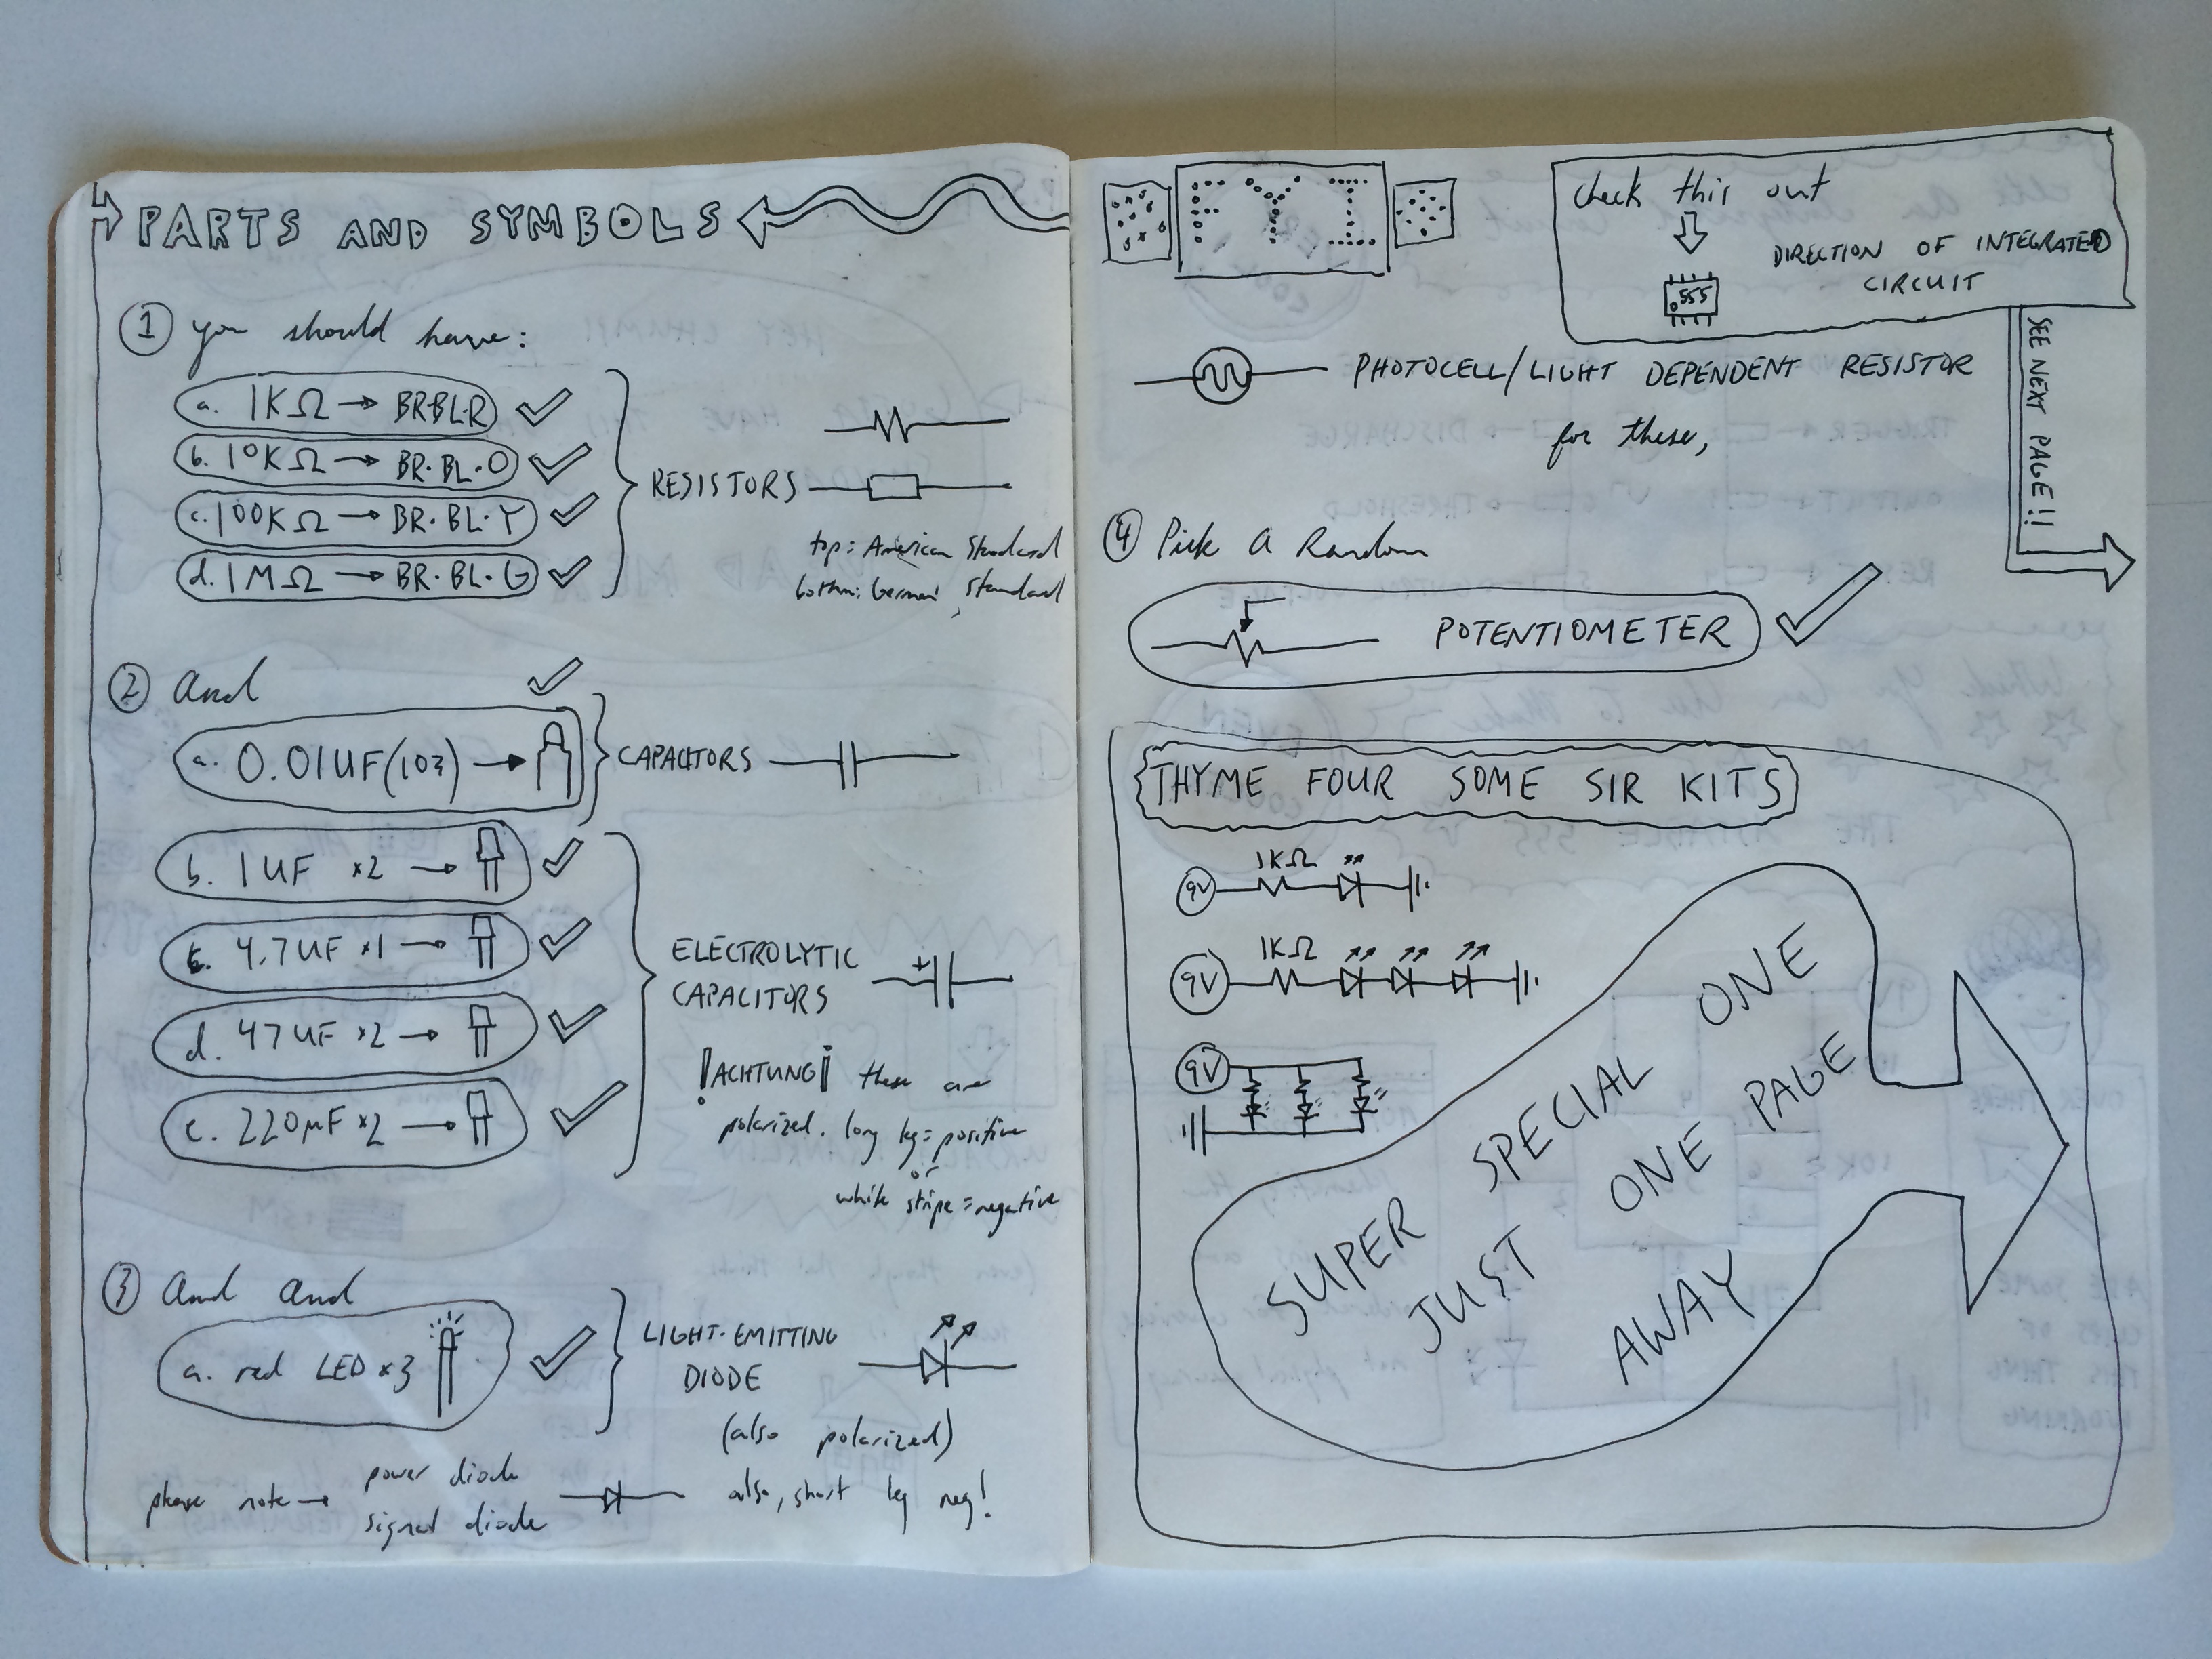 PARTS AND SYMBOLS
1 you should have:
a. 1KΩ → BR·BL·R
b. 10KΩ → BR·BL·O
c. 100KΩ → BR·BL·Y
d. 1MΩ → BR·BL·G
RESISTORS
top: American Standard
bottom: German Standard
2 And
a. 0.01UF(103) →
CAPACITORS
b. 1UF x2 →
c. 4.7UF x1 →
d. 47UF x2 →
e. 220µF x2 →
ELECTROLYTIC
CAPACITORS
+
!ACHTUNG! these are
polarized. long leg = positive
or
white stripe = negative
3 And And
a. red LED x3
LIGHT-EMITTING
DIODE
(also polarized)
also, short leg neg!
please note → power diode
signal diode
FYI
check this out
555
DIRECTION OF INTEGRATED
CIRCUIT
SEE NEXT PAGE!!
PHOTOCELL/LIGHT DEPENDENT RESISTOR
for these,
4 Pick A Random
POTENTIOMETER
THYME FOUR SOME SIR KITS
9V 1KΩ
9V 1KΩ
9V
SUPER SPECIAL ONE
JUST ONE PAGE
AWAY